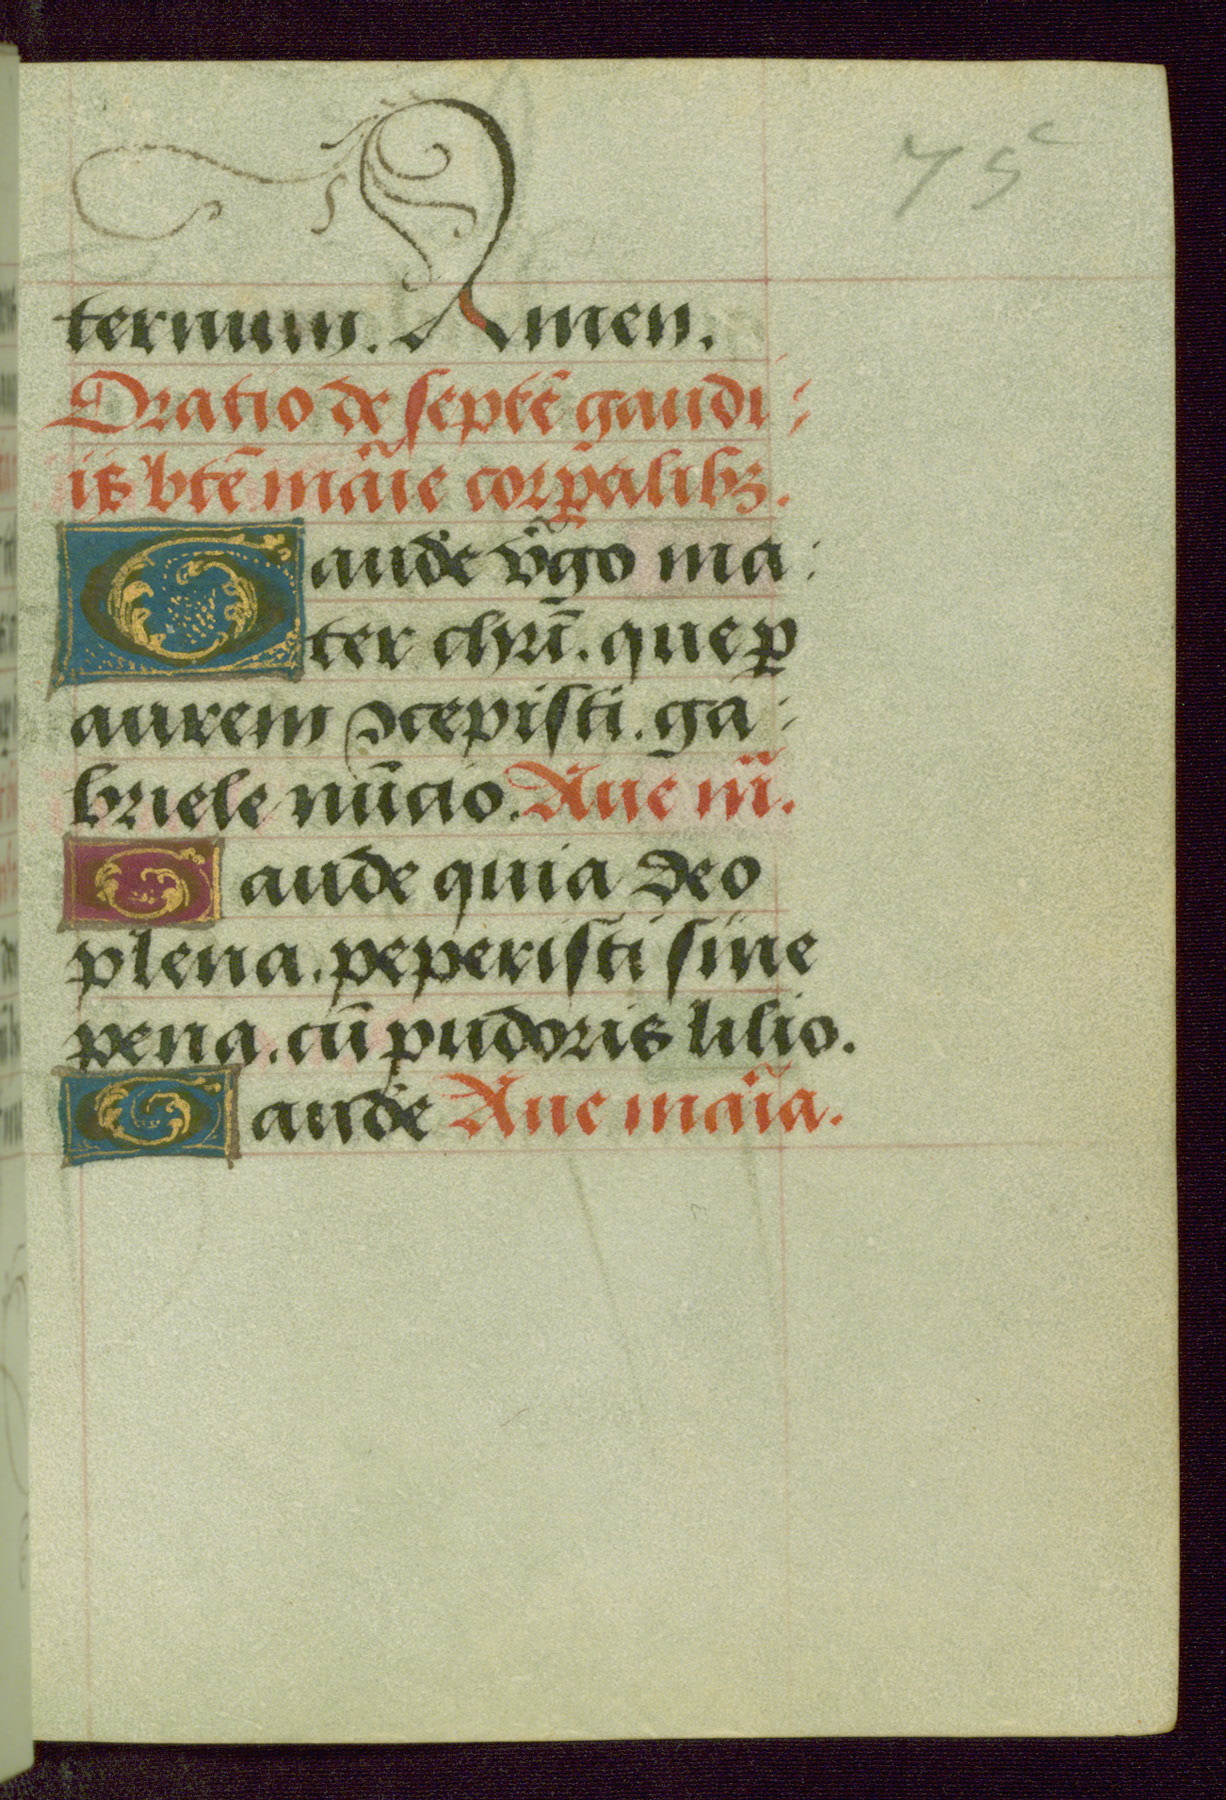 75c
ternum. Amen.
Oratio de septē gaudi:
is bt̄e māie corp̄alibꝫ.
Gaude v̄go ma:
ter chrī. que ꝑ
aurem ꝯcepisti. ga:
briele nūcio. Aue m̄.
Gaude quia deo
plena. peperisti sine
pena. cū pudoris lilio.
Gaude Aue maīa.